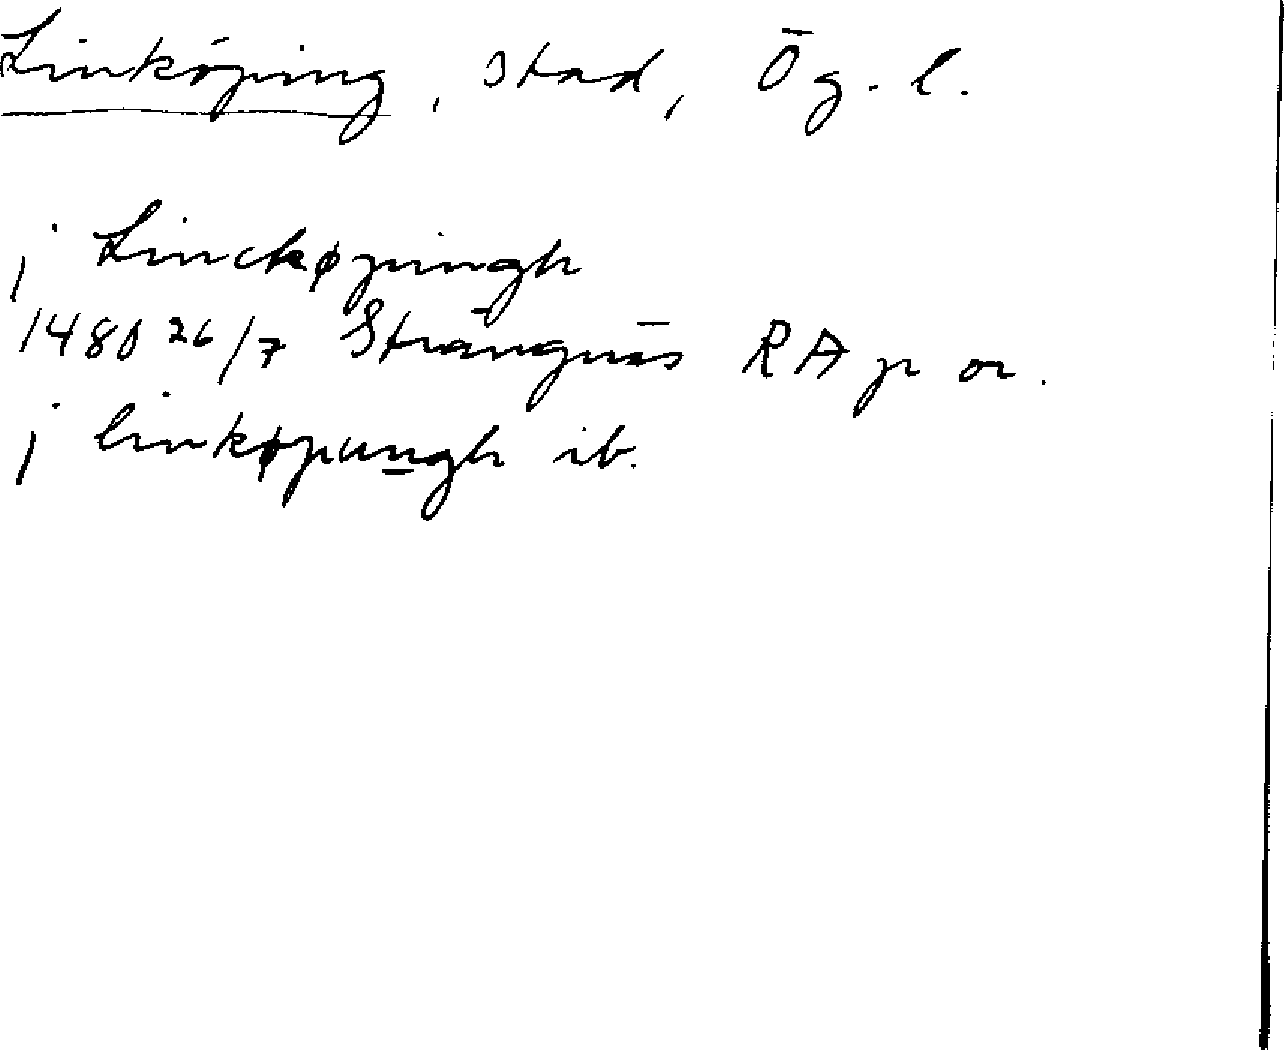 Linköping, stad, Ög. l.
j Linckøpingh
1480 26/7 Strängnäs RA p or.
j linkøpungh ib.